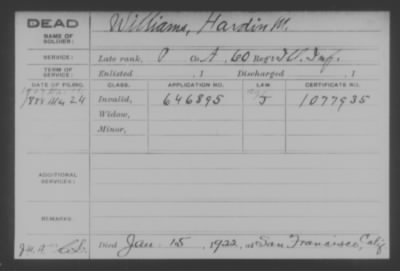 DEAD
NAME OF SOLDIER:
Williams, Hardin M.
SERVICE:
Late rank, P Co. A, 60 Reg't Ill. Inf.
TERM OF SERVICE:
Enlisted , 1 Discharged , 1
DATE OF FILING. CLASS. APPLICATION NO. LAW CERTIFICATE NO.
1888 24 Invalid, 646895 J 1077935
Widow,
Minor,
ADDITIONAL SERVICES:
REMARKS:
Died Jan. 15, 1922, at San Francisco, Calif